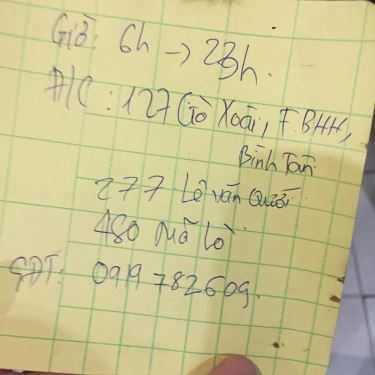 Giờ: 6h → 23h.
Đ/C: 127 Gò Xoài, F. BHH,
Bình Tân
277 Lê Văn Quới
480 Mã Lò
SĐT: 0919 782609.